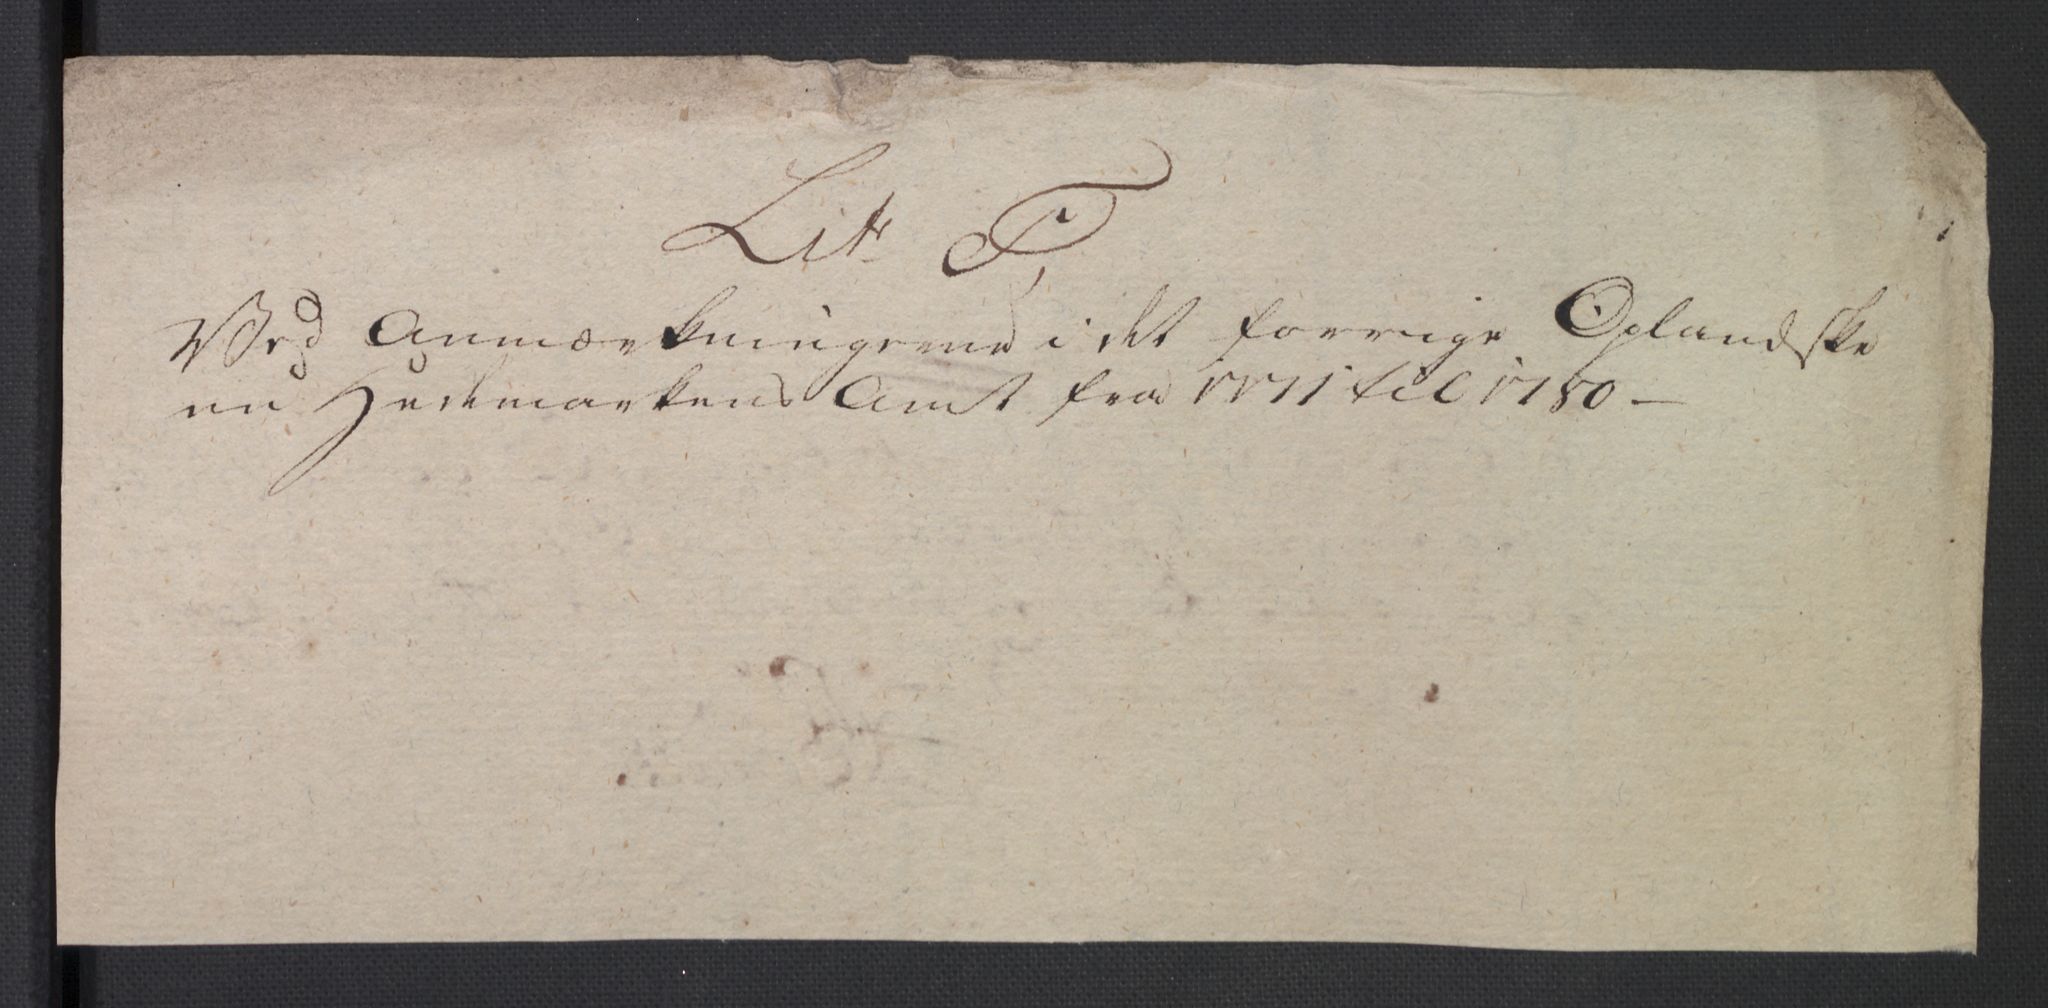 Litr F,
Ved Anmærkningerne i det forrige Oplandske
nu Hedemarkens Amt fra 1771 til 1780 —